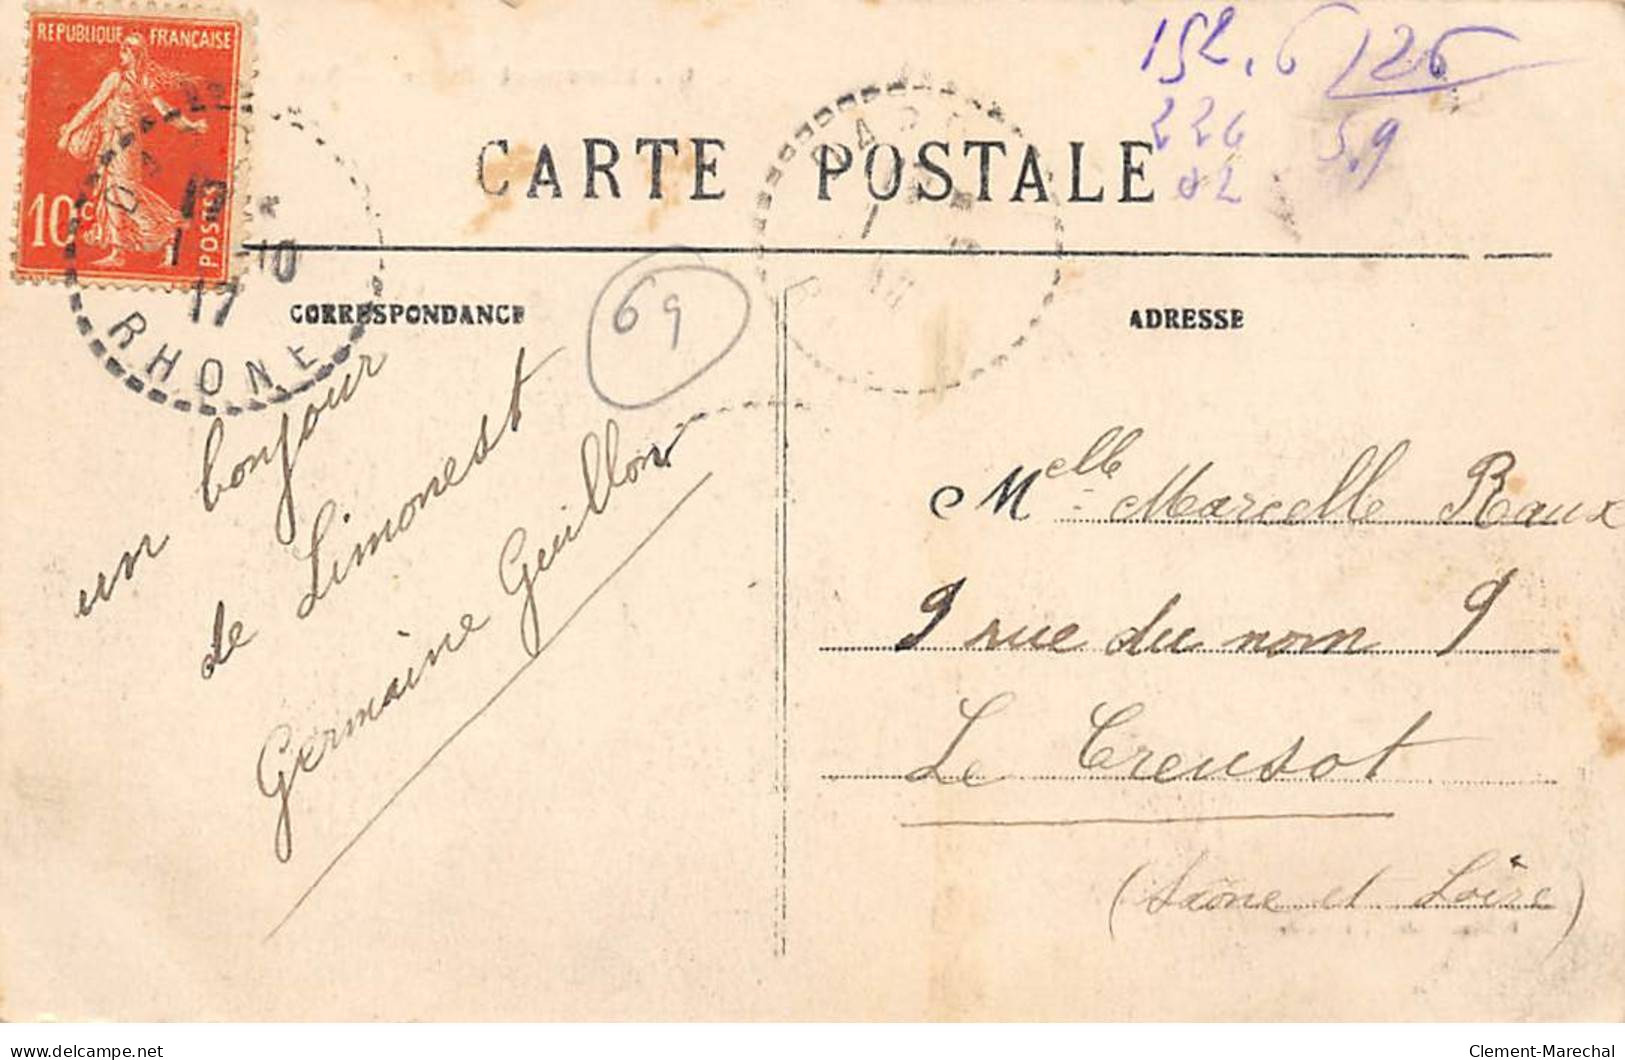 REPUBLIQUE FRANCAISE
10c
POSTES
RHONE
10
17
CARTE POSTALE
152,6 / 26
226 5,9
CORRESPONDANCE
ADRESSE
69
un bonjour
de Limonest
Germaine Guillon
Melle Marcelle Raux
9 rue du nom 9
Le Creusot
(Saone et Loire)
delcampe.net
Clement-Marechal